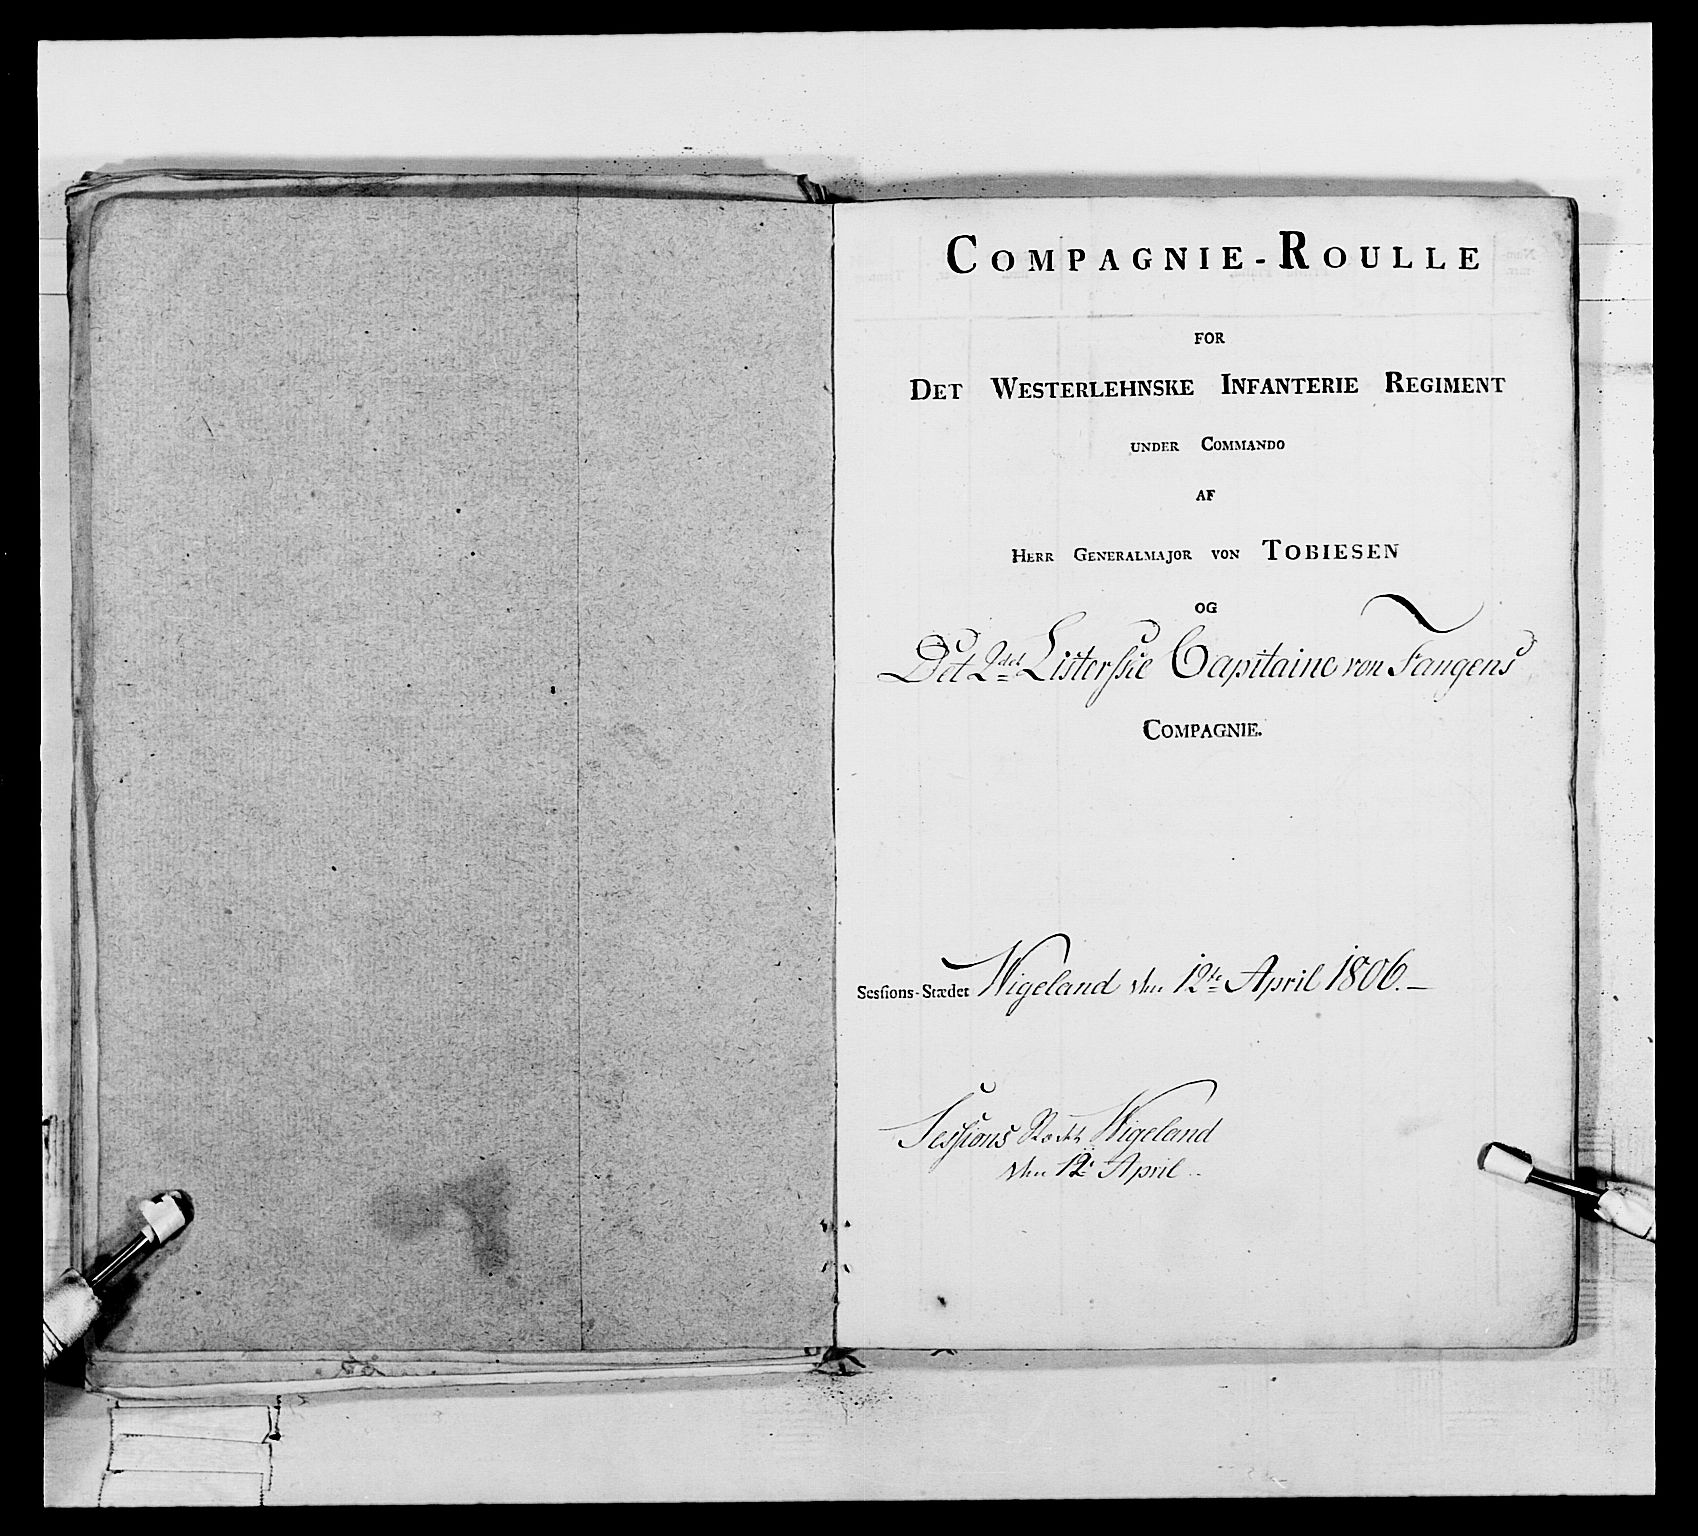 COMPAGNIE-ROULLE
FOR
DET WESTERLEHNSKE INFANTERIE REGIMENT
UNDER COMMANDO
AF
HERR GENERALMAJOR VON TOBIESEN
OG
Det 2det Listerske Capitaine von Fangens
COMPAGNIE.
Sesſions-Stædet Wigeland den 12te April 1806.—
Sessions Stædet Wigeland
den 12te April..